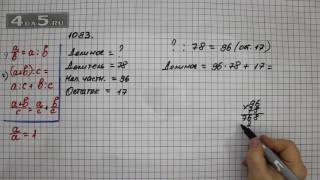 4a5.ru
1083.
Делимое = ?
Делитель = 78
Неп. частн. = 96
Остаток = 17
? : 78 = 96 (ост. 17)
Делимое = 96 · 78 + 17 =
96
× 78
768
2
a/b = a : b
(a+b) : c =
a : c + b : c
a+b/c = a/c + b/c
a/a = 1